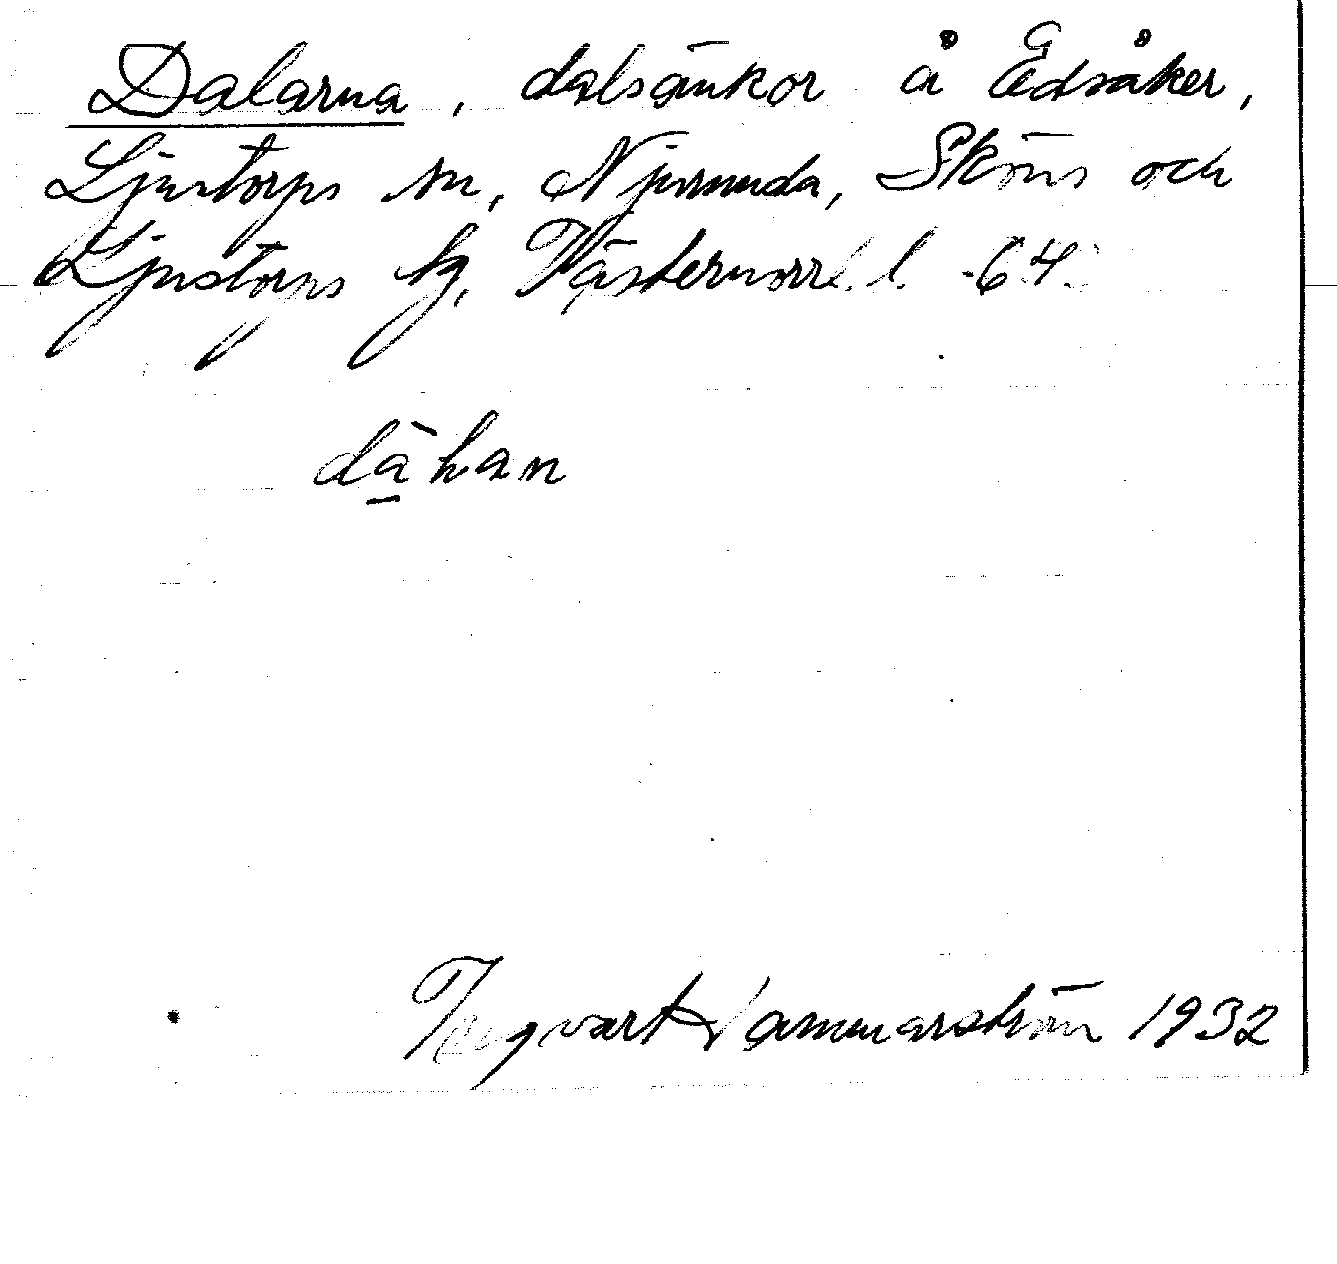 Dalarna, dalsänkor å Edsåker,
Ljustorps sn, Njurunda, Sköns och
Ljustorps tg, Västernorrl. l. -64.
dàhan
Ingvart Hammarström 1932